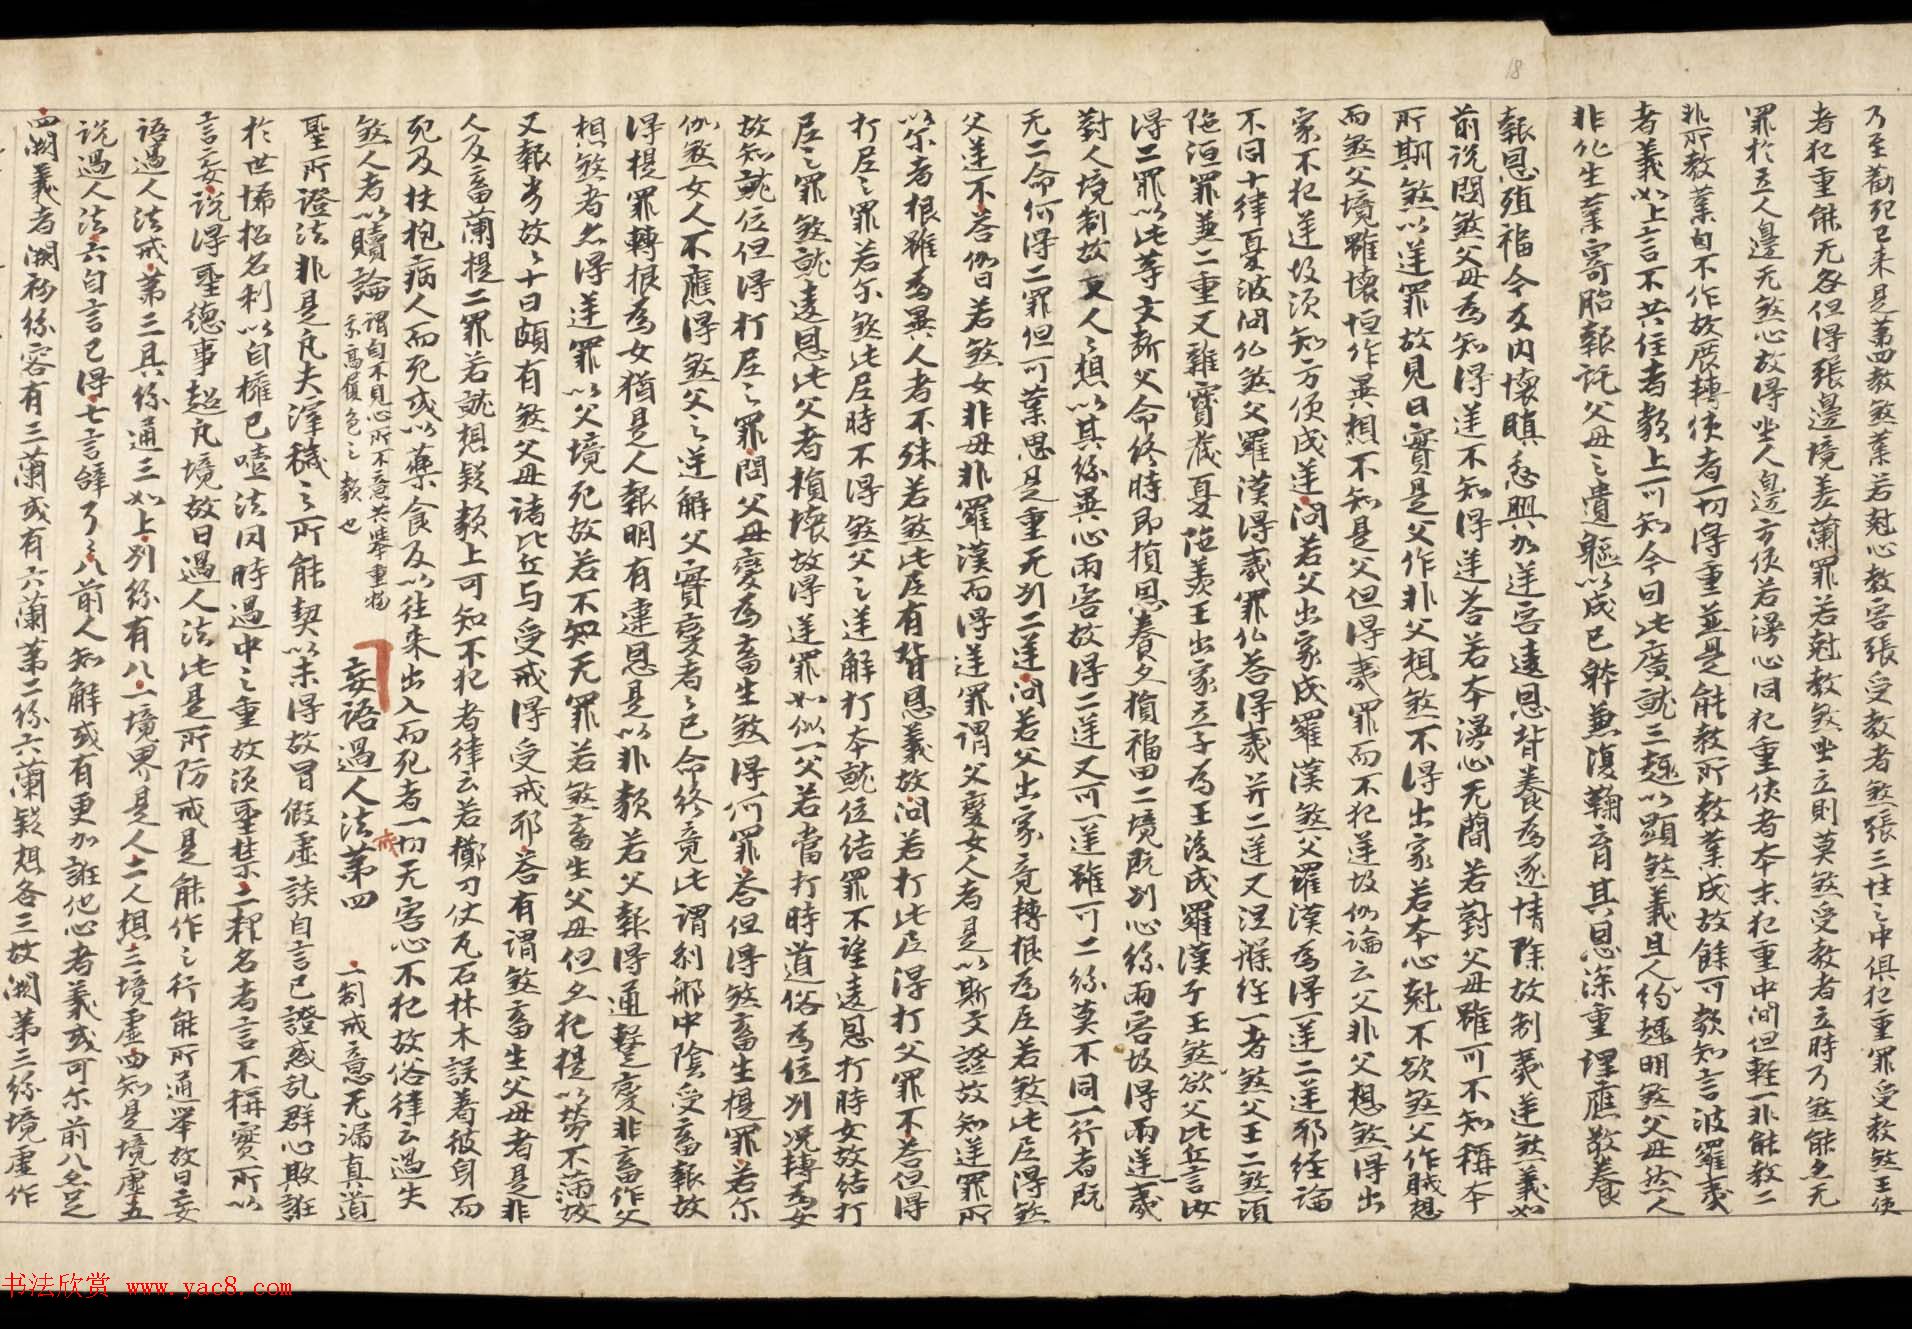 乃至勸死已來是苐四教煞業若尅心教害張受教者煞張三性之中俱犯重罪受教煞王使
者犯重能无咎但得張邊境差蘭罪若尅教煞坐立則莫煞受教者立時乃煞能亦无
罪於立人邊无煞心故得坐人邊方便若漫心同犯重使者本末犯重中間但輕一非能教二
非所教業自不作故展轉使者一切得重並是能教所教業成故餘可類知言波羅夷
者義如上言不共住者類上可知今曰此廣就三趣以顯煞義且人約趣明煞父母然人
非化生業寄胎報託父母之遺軀以成已躰兼復鞠育其恩深重理應敬養
報恩殖福今友內懷瞋忿興加逆害違恩背養為逐情除故制夷逆煞義如
前說問煞父母為知得逆不知得逆荅若本漫心无蕳若對父母雖可不知稱本
所期煞以逆罪故見曰實是父作非父想煞不得出家若本心尅不欲煞父作賊想
而煞父境雖壞恒作異想不知是父但得夷罪而不犯逆故仏論云父非父想煞得出
家不犯逆故須知方便成逆問若父出家成羅漢煞父羅漢為得一逆二逆耶經論
不同十律憂波問仏煞父羅漢得夷罪仏荅得夷并二逆又涅槃經一者煞父王二煞須
陁洹罪兼二重又雜寶藏憂陁羨王出家立子為王後成羅漢子王煞欲父比丘言汝
得二罪以此等文斷父命終時即損恩養亦損福田二境既別心緣兩害故得兩逆一夷
對人境制故文人人想以其緣異心兩害故得二逆又可一逆雖可二緣莫不同一行者既
无二命何得二罪但可業思是重无別二逆問若父出家竟轉根為尼若煞此尼得煞
父逆不荅仏曰若煞女非母非羅漢而得逆罪謂父變女人者是以斯文證故知逆罪所
以尔者根雖為異人者不殊若煞此尼有背恩義故問若打此尼得打父罪不荅但得
打尼之罪若尔煞此尼時不得煞父之逆解打本就位結罪不望違恩打時女故結打
尼之罪煞就違恩此父者損壞故得逆罪如似一父若當打時道俗為位別況轉為女
故知就位但得打尼之罪問父母變為畜生煞得何罪荅但得煞畜生提罪若尔
仏煞女人不應得煞父之逆解父實變者之已命終竟此謂剎那中陰受畜報故
得提罪轉根為女猶是人報明有違恩是以非類若父報得通轝之變非畜作父
想煞者亦得逆罪以父境死故若不知无罪若煞畜生父母但亦犯提以勞不蒲故
又報劣故故十曰頗有煞父母諸比丘与受戒得受戒耶荅有謂煞畜生父母者是非
人及畜蘭提二罪若就想疑類上可知不犯者律云若擲刀仗瓦石林木誤著彼身而
死及扶抱病人而死或以藥食及以往來出入而死者一切无害心不犯故俗律云過失
煞人者以贖論謂自不見心所不意共舉重物
聖所證法非是凡夫滓穢之所能契以未得故冒假虛談自言已證惑乱群心欺誑
於世悕招名利以自擁已噎法冈時過中之重故須聖禁二釋名者言不稱實所以
言妄說得聖德事超凡境故曰過人法此是所防戒是能作之行能所通舉故曰妄
語過人法戒苐三具緣通三如上別緣有八一境界是人二人想三境虛四知是境虛五
說過人法六自言已得七言辞了了八前人知解或有更加誑他心者義或可尔前八亦足
四闕義者闕初緣容有三蘭或有六蘭苐二緣六蘭疑想各三故闕苐三緣境虛作